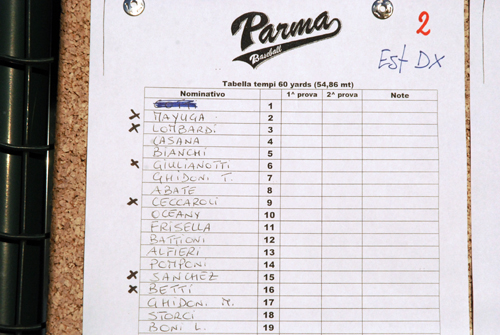 Parma
Baseball
2
Est DX
Tabella tempi 60 yards (54,86 mt)
Nominativo 1^ prova 2^ prova Note
1
x MAYUGA 2
x LOMBARDI 3
CASANA 4
BIANCHI 5
x GIULIANOTTI 6
GHIDONI T. 7
ABATE 8
x CECCAROLI 9
OCEANY 10
FRISELLA 11
BATTIONI 12
ALFIERI 13
POMPONI 14
x SANCHEZ 15
x BETTI 16
GHIDONI M. 17
STORCI 18
BONI L. 19